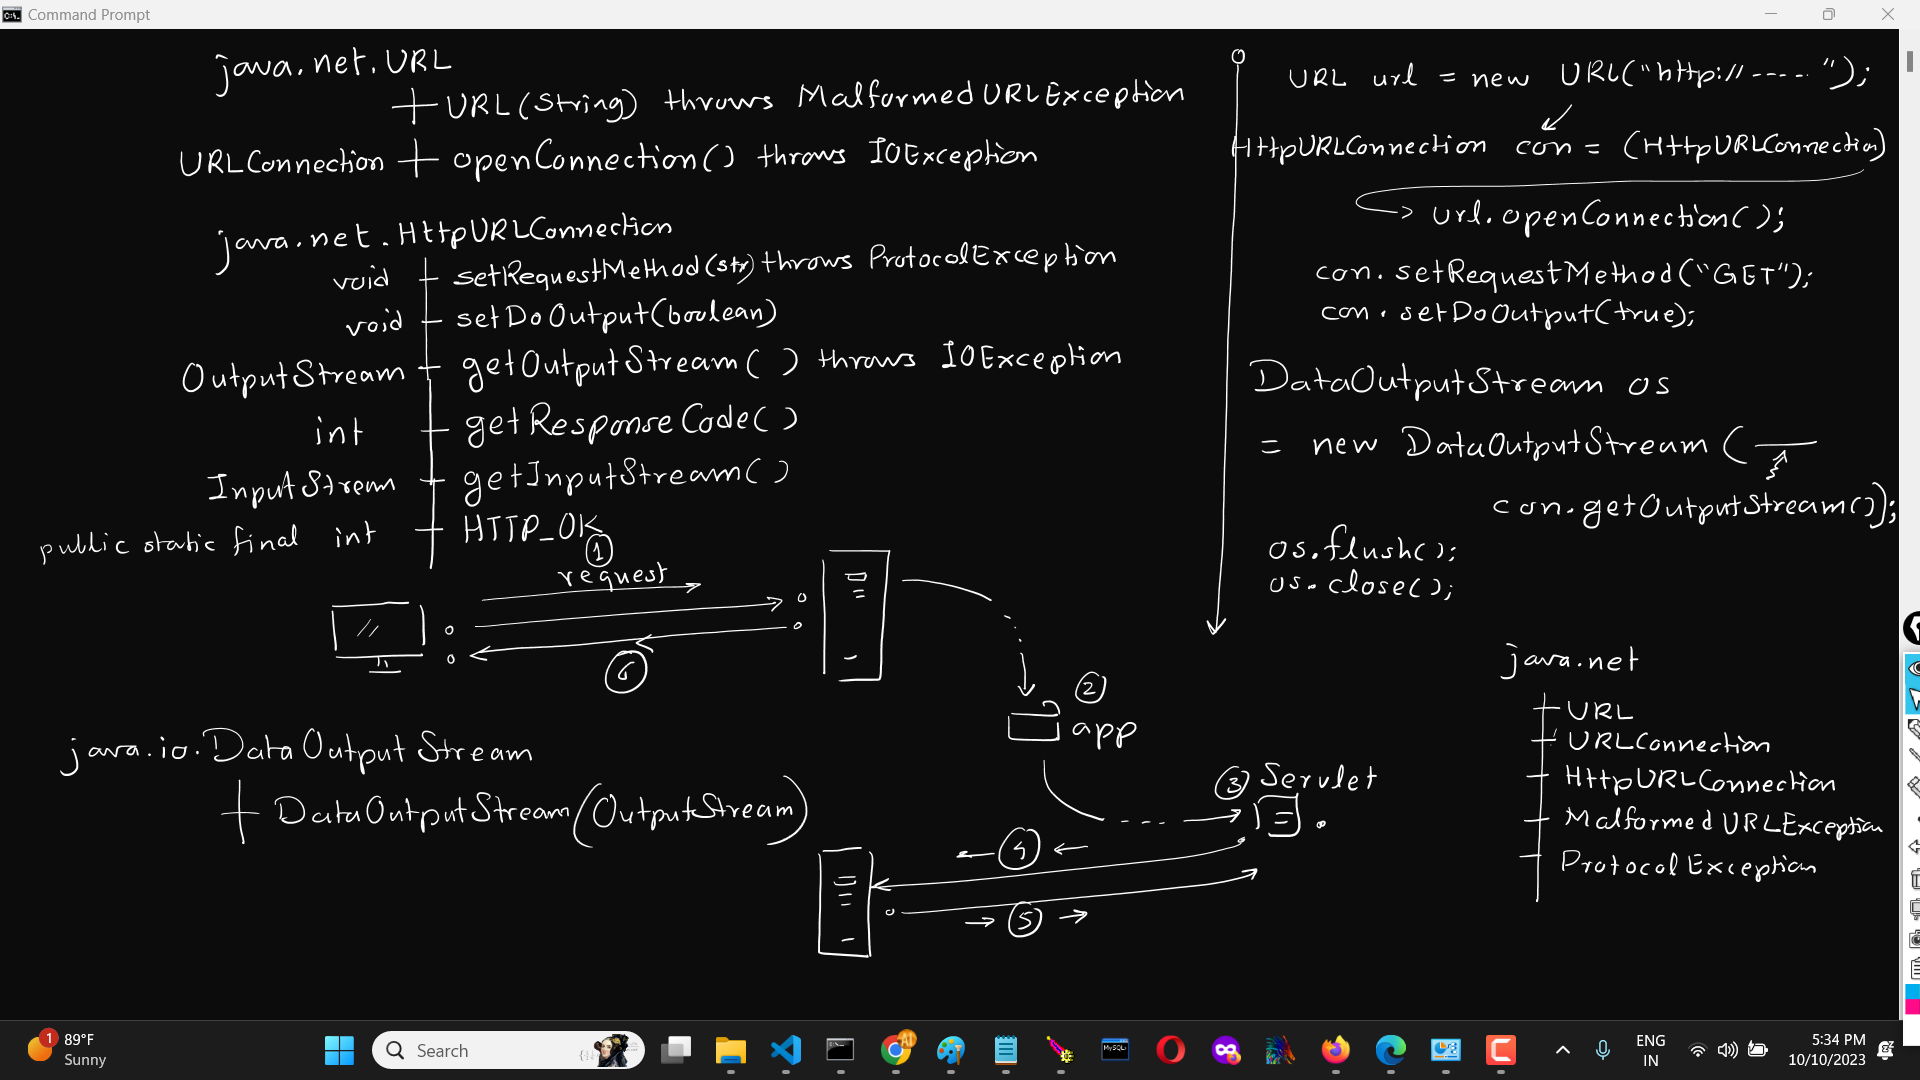 Command Prompt
java.net.URL
URL(String) throws MalformedURLException
URLConnection openConnection() throws IOException
java.net.HttpURLConnection
void setRequestMethod(str) throws ProtocolException
void setDoOutput(boolean)
OutputStream getOutputStream( ) throws IOException
int getResponseCode( )
InputStream getInputStream( )
public static final int HTTP_OK
1
request
6
2
app
3 Servlet
4
5
java.io.DataOutputStream
DataOutputStream(OutputStream)
URL url = new URL("http://-----");
HttpURLConnection con = (HttpURLConnection)
url.openConnection( );
con.setRequestMethod("GET");
con.setDoOutput(true);
DataOutputStream os
= new DataOutputStream (
con.getOutputStream());
os.flush();
os.close();
java.net
URL
URLConnection
HttpURLConnection
MalformedURLException
ProtocolException
1
89°F
Sunny
Search
AI
MySQL
ENG
IN
5:34 PM
10/10/2023